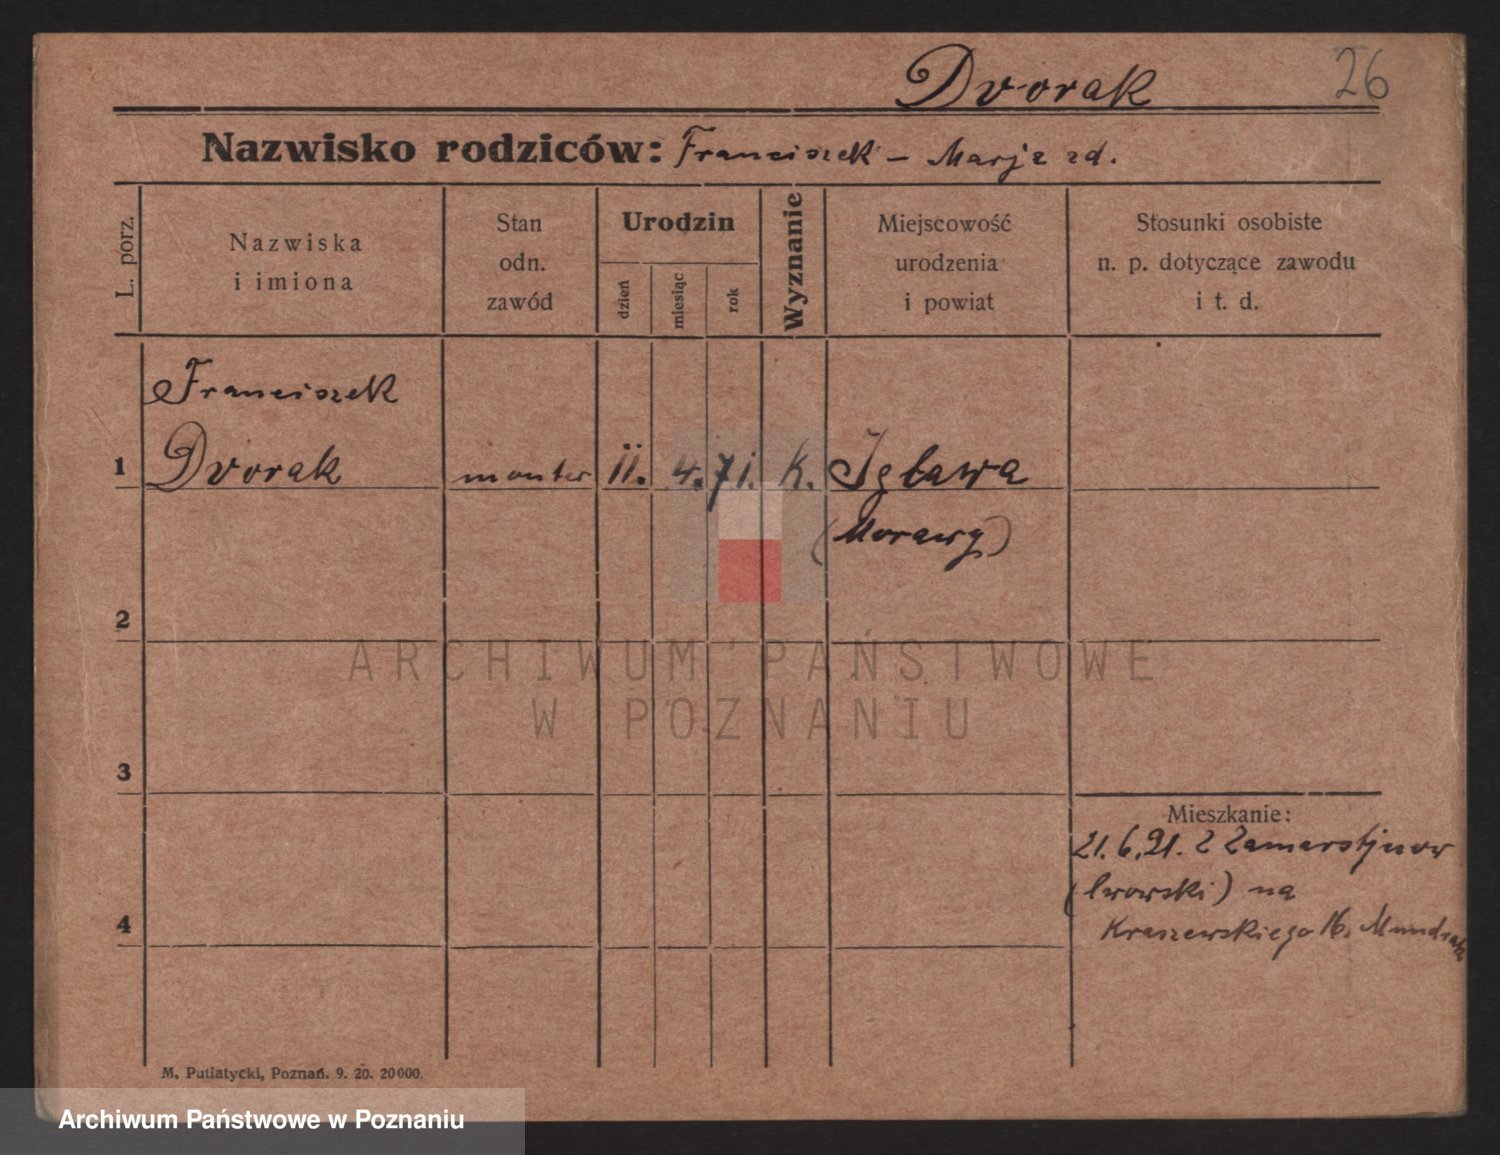 Dvorak 26
Nazwisko rodziców: Franciszek – Marja zd.
L. porz.
Nazwiska
i imiona
Stan
odn.
zawód
Urodzin
dzień
miesiąc
rok
Wyznanie
Miejscowość
urodzenia
i powiat
Stosunki osobiste
n. p. dotyczące zawodu
i t. d.
Franciszek
1 Dvorak monter 11. 4. 71. K. Igława
(Morawy)
2
3
4
Mieszkanie:
21.6.21. z Zamarstynow
(lwowski) na
Kraszewskiego 16.
M. Putiatycki, Poznań. 9. 20. 20000.
ARCHIWUM PAŃSTWOWE
W POZNANIU
Archiwum Państwowe w Poznaniu